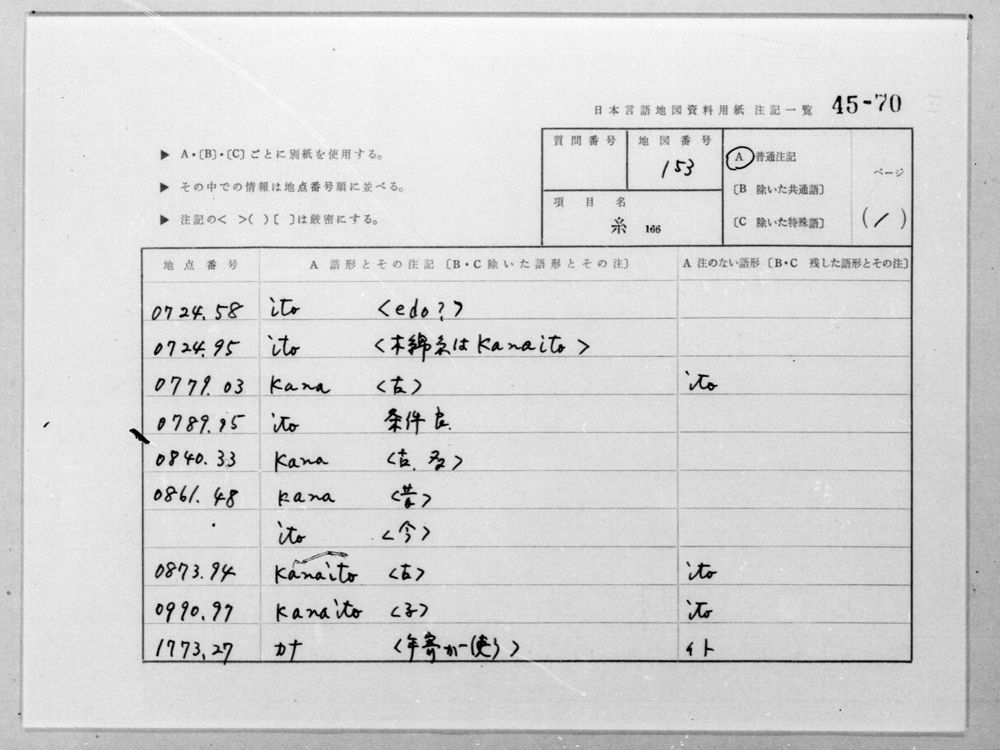 日本言語地図資料用紙 注記一覧 45-70
▶ A・〔B〕・〔C〕ごとに別紙を使用する。
▶ その中での情報は地点番号順に並べる。
▶ 注記の< >( )[ ]は厳密にする。
質問番号 地図番号 153
項目名 糸 166
A 普通注記
〔B 除いた共通語〕
〔C 除いた特殊語〕
ページ (1)
地点番号 A 語形とその注記〔B・C除いた語形とその注〕 A 注のない語形〔B・C 残した語形とその注〕
0724.58 ito <edo?>
0724.95 ito <木綿糸はkanaito>
0779.03 kana <古> ito
0789.95 ito 条件良.
0840.33 kana <古.多>
0861.48 kana <昔>
ito <今>
0873.94 kanaito <古> ito
0990.97 kanaito ito
1773.27 カナ <年寄が(使)> イト